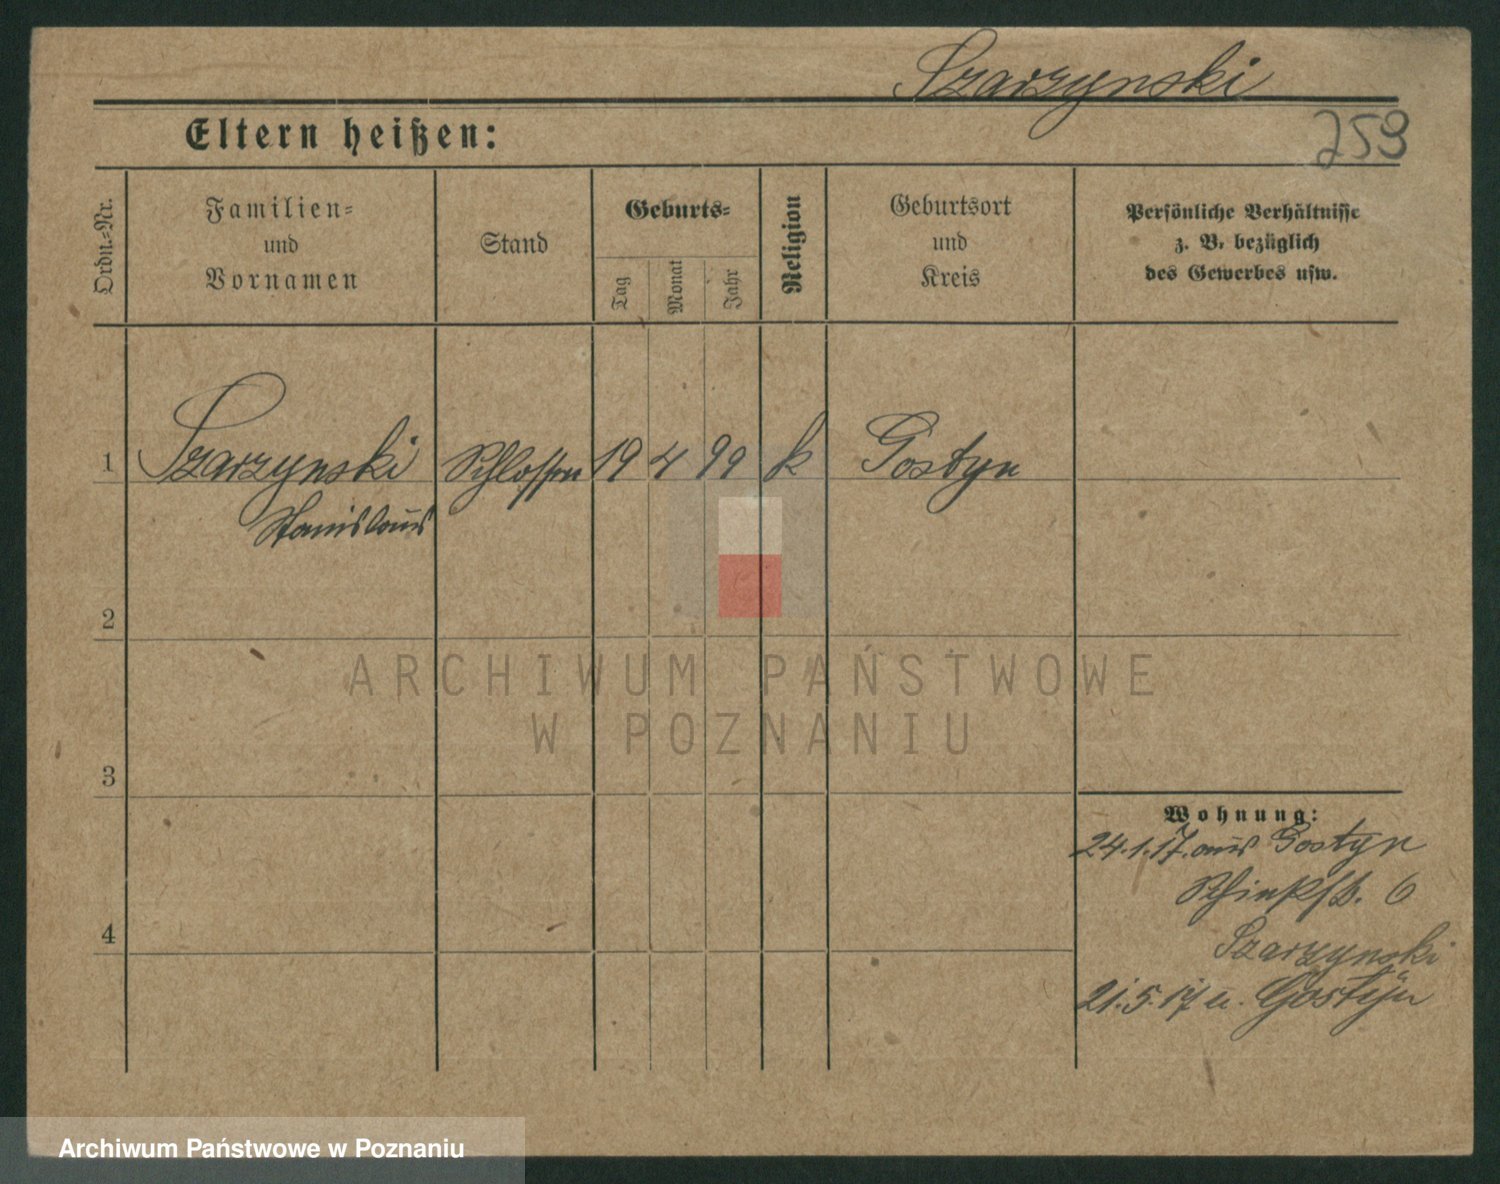 Szarzynski
Eltern heißen:
259
Ordn.-Nr.
Familien-
und
Vornamen
Stand
Geburts-
Tag
Monat
Jahr
Religion
Geburtsort
und
Kreis
Persönliche Verhältnisse
z. B. bezüglich
des Gewerbes usw.
1 Szarzynski Schlosser 19 4 99 k Gostyn
Stanislaus
2
3
4
ARCHIWUM PAŃSTWOWE
W POZNANIU
Wohnung:
24.1.17. aus Gostyn
6
Szarzynski
21.5.17 n. Gostyn
Archiwum Państwowe w Poznaniu